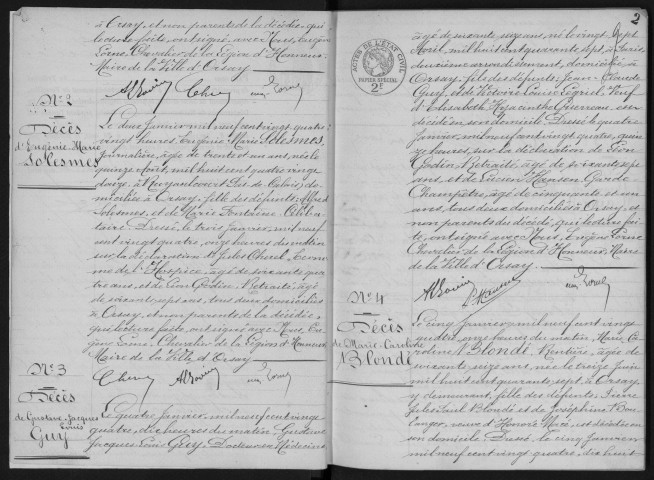 à Orsay, et non parents de la décédée, qui
lecture faite, ont signé avec Nous, Eugène
Lorne, Chevalier de la Légion d'Honneur
Maire de la Ville d'Orsay
N° 2
Décès
d'Eugénie-Marie
Solesmes
Le deux janvier mil neuf cent vingt quatre
vingt heures, Eugénie Marie Solesmes,
journalière, âgée de trente et un ans, née le
quinze Août, mil huit cent quatre vingt
douze à (Pas de Calais) do-
miciliée à Orsay, fille des défunts, Alfred
Solesmes, et de Marie Fontaine. Céliba-
taire. Dressé, le trois janvier, mil neuf
cent vingt quatre, onze heures du matin
sur la déclaration de Jules Cheul, Econo-
me de l'Hospice, âgé de soixante qua-
tre ans, et de Léon Godin, Retraité, âgé
de soixante sept ans, tous deux domiciliés
à Orsay, et non parents de la décédée,
qui, lecture faite, ont signé avec Nous, Eu-
gène Lorne, Chevalier de la Légion d'Honneur
Maire de la Ville d'Orsay
N° 3
Décès
de Gustave-Jacques
Louis
Guy
Le quatre janvier, mil neuf cent vingt
quatre, dix heures du matin, Gustave
Jacques Louis Guy, Docteur en Médecine
2
ACTES DE L'ETAT CIVIL
PAPIER SPÉCIAL
2F
âgé de soixante seize ans, né le vingt sept
Avril, mil huit cent quarante sept, à Paris
douzième arrondissement, domicilié, à
Orsay, fils des défunts, Jean-Claude
Guy, et de Victoire Louise Veuf
d'Elisabeth Hyacinthe est
décédé en son domicile. Dressé le quatre
janvier, mil neuf cent vingt quatre, quin-
ze heures, sur la déclaration de Léon
Godin, Retraité, âgé de soixante sept
ans, et de Lucien Hansen, Garde
Champêtre, âgé de cinquante et un
ans, tous deux domiciliés à Orsay, et
non parents du décédé, qui, lecture fai-
te, ont signé avec Nous, Eugène Lorne
Chevalier de la Légion d'Honneur, Maire
de la Ville d'Orsay.
N° 4
Décès
de Marie-Caroline
Blondé
Le cinq janvier, mil neuf cent vingt
quatre, onze heures du matin, Marie Ca-
roline Blondé, Rentière, âgée de
soixante seize ans, née le treize Juin
mil huit cent quarante sept, à Orsay
y demeurant, fille des défunts, Pierre
Jules Paul Blondé, et de Joséphine Bou-
langer, veuve d'Honoré Macé, est décédée en
son domicile. Dressé, le cinq janvier
mil neuf cent vingt quatre, dix huit